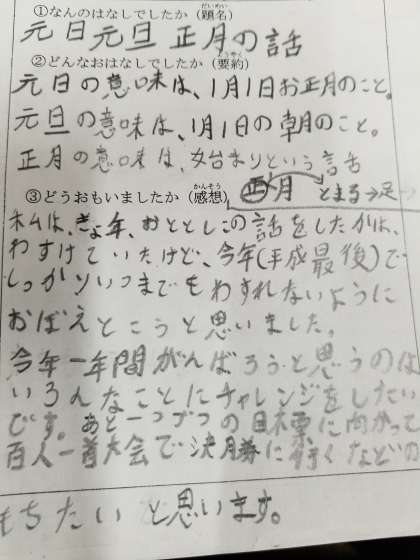 ①なんのはなしでしたか（題名）
元日元旦 正月の話
②どんなおはなしでしたか（要約）
元日の意味は、1月1日お正月のこと。
元旦の意味は、1月1日の朝のこと。
正月の意味は、始まりという話
③どうおもいましたか（感想） 正月 とまる→足→
私は、きょ年、おととしこの話をしたかは、
わすけていたけど、今年(平成最後)で
しっかりいつまでもわすれないように
おぼえとこうと思いました。
今年一年間がんばろうと思うのは
いろんなことにチャレンジをしたい
です。あと一つづつの目標に向かって
百人一首大会で決勝に行くなどの
もちたいと思います。